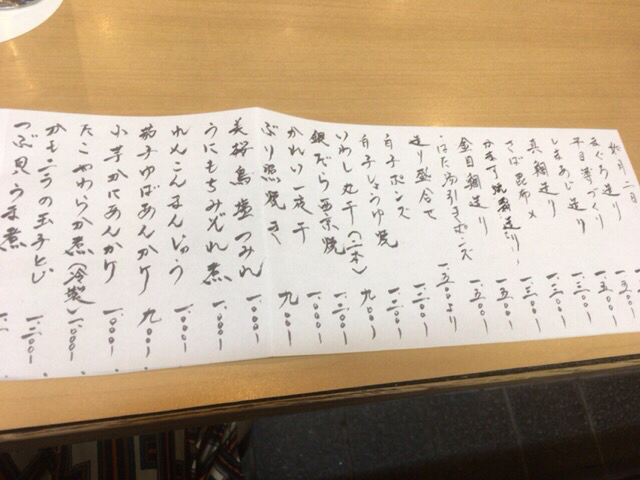 月二日
まぐろ造り
平目薄づくり 一、五〇〇
しまあじ造り 一、五〇〇
真鯛造り 一、三〇〇
さば昆布〆 一、三〇〇
かます 造り
金目鯛造り 一、五〇〇
はた湯引きポンズ 一、五〇〇
造り盛合せ 一、五〇〇より
白子ポンズ 一、二〇〇
白子しょうゆ焼 一、二〇〇
いわし丸干(二本) 九〇〇
銀だら西京焼 一、二〇〇
かれい一夜干 一、〇〇〇
ぶり照焼き 九〇〇
美桜鳥塩つみれ 一、〇〇〇
うにもちみぞれ煮 一、〇〇〇
れんこんまんじゅう 一、〇〇〇
茄子ゆばあんかけ 九〇〇
小芋かにあんかけ 一、〇〇〇
たこやわらか煮(冷製) 一、〇〇〇
かも うの玉子とじ 一、二〇〇
つぶ貝うま煮